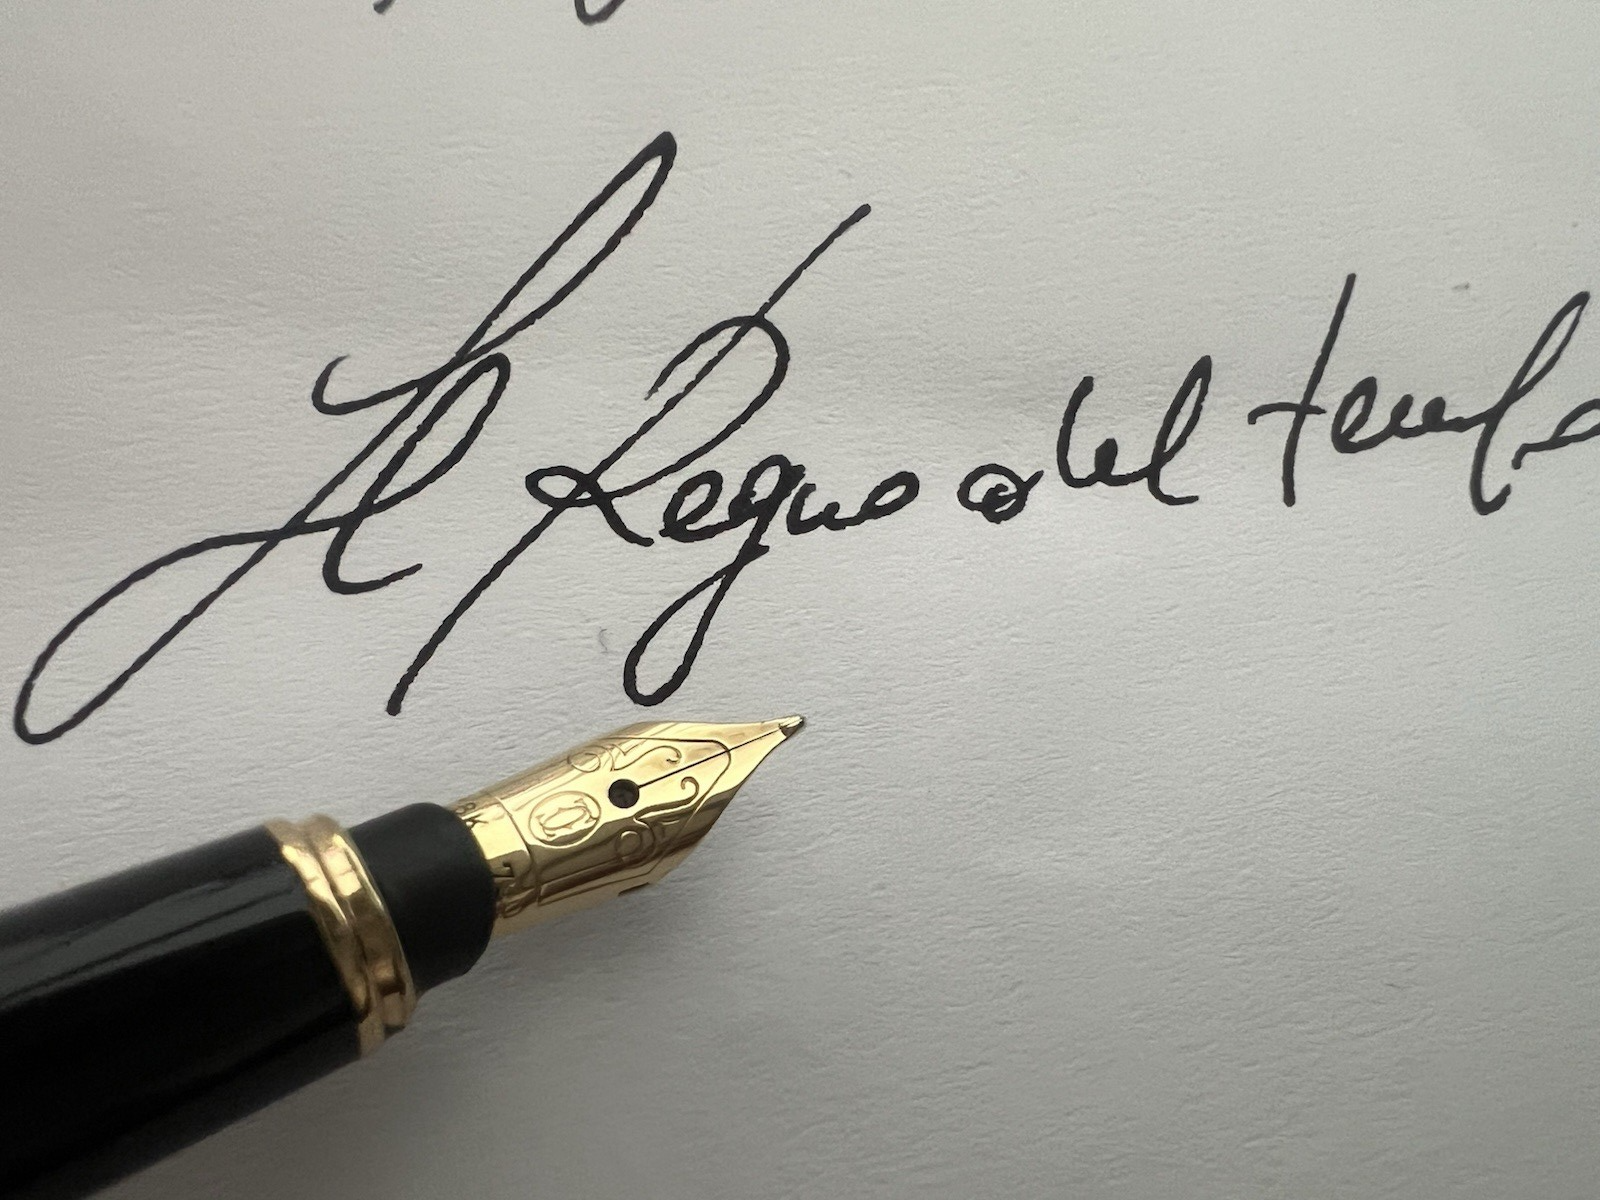 Il Regno del tempo
8K
7